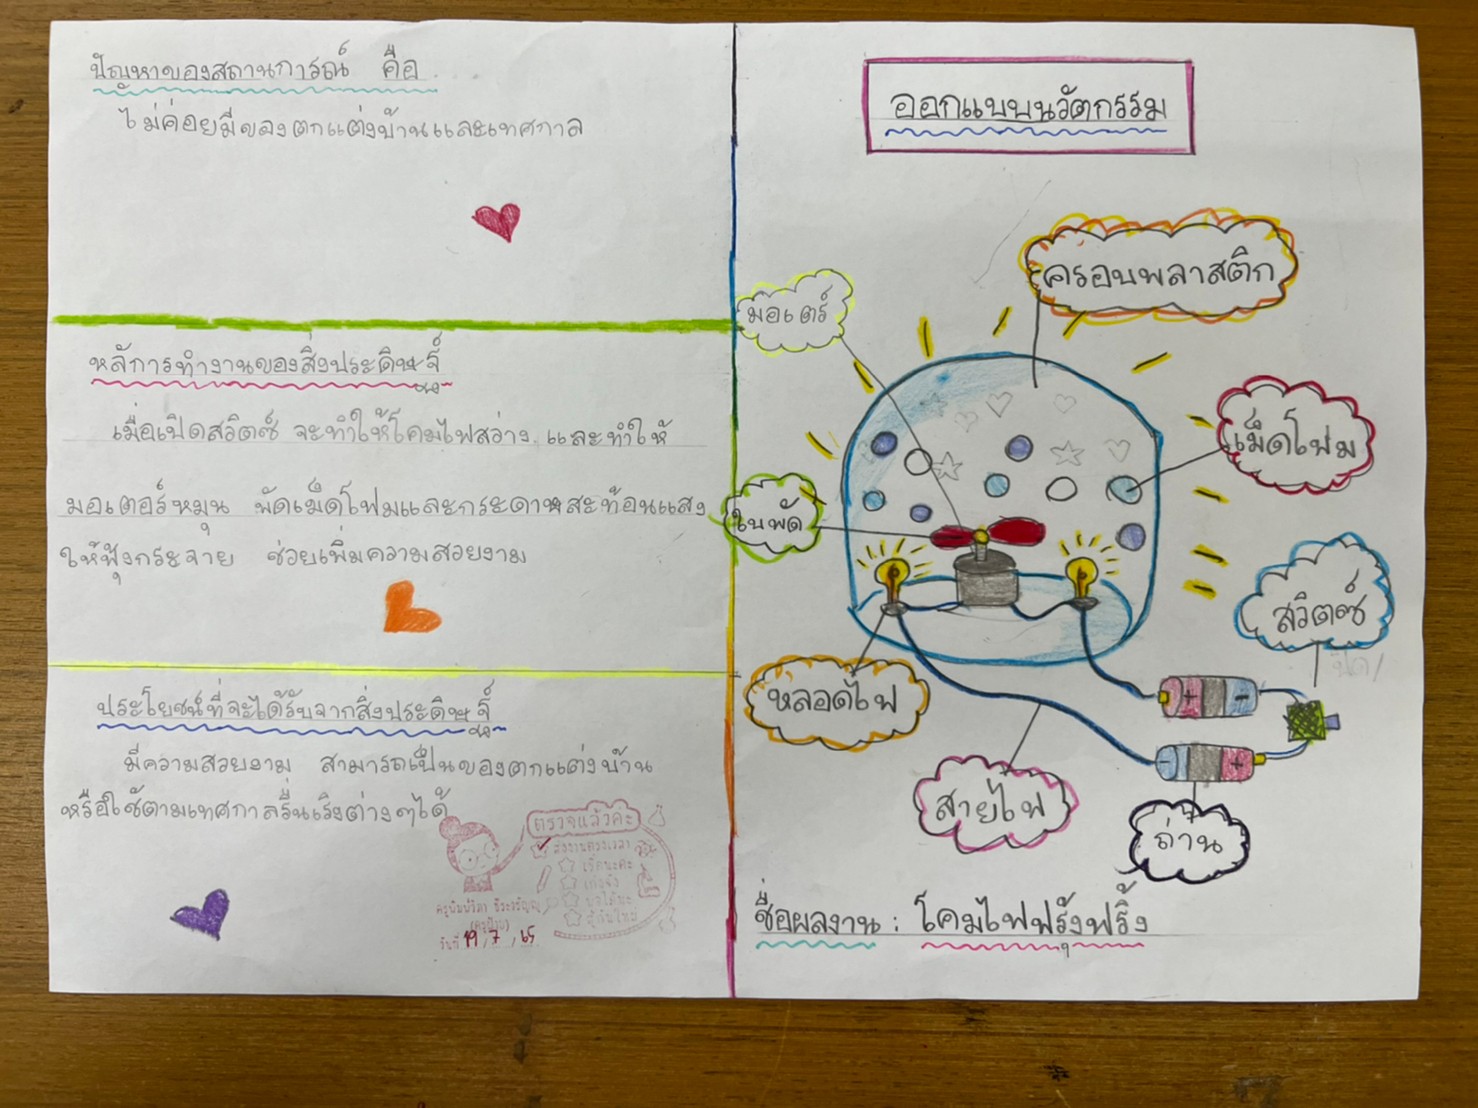 ปัญหาของสถานการณ์ คือ
ไม่ค่อยมีของตกแต่งบ้านและเทศกาล
หลัการทำงานของสิ่งประดิษฐ์
เมื่อเปิดสวิตซ์ จะทำให้โคมไฟสว่าง และทำให้
มอเตอร์หมุน พัดเม็ดโฟมและกระดาษสะท้อนแสง
ให้ฟุ้งกระจาย ช่วยเพิ่มความสวยงาม
ประโยชน์ที่จะได้รับจากสิ่งประดิษฐ์
มีความสวยงาม สามารถเป็นของตกแต่งบ้าน
หรือใช้ตามเทศกาลรื่นเริงต่างๆได้
ตรวจแล้วค่ะ
ส่งงานตรงเวลา
วันที่ 19, 7, 65
ออกแบบนวัตกรรม
ครอบพลาสติก
มอเตร์
เม็ดโฟม
ใบพัด
สวิตซ์
หลอดไฟ
สายไฟ
ถ่าน
ชื่อผลงาน : โคมไฟฟรุ้งฟริ้ง